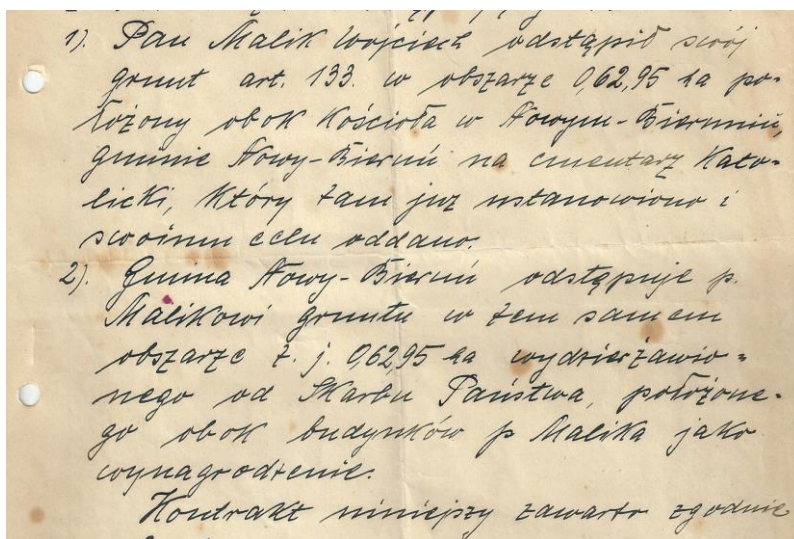 1). Pan Malik Wojciech odstąpił swój
grunt art. 133. w obszarze 0,62,95 ha po-
łożony obok Kościoła w Nowym-Bieruniu,
gminie Nowy-Bieruń na cmentarz Kato-
licki, który tam już ustanowiono i
swoimu celu oddano.
2). Gmina Nowy-Bieruń odstępuje p.
Malikowi gruntu w tem samem
obszarze t. j. 0,62,95 ha wydzierżawio-
nego od Skarbu Państwa, położone-
go obok budynków p Malika jako
wynagrodzenie.
Kontrakt niniejszy zawarto zgodnie